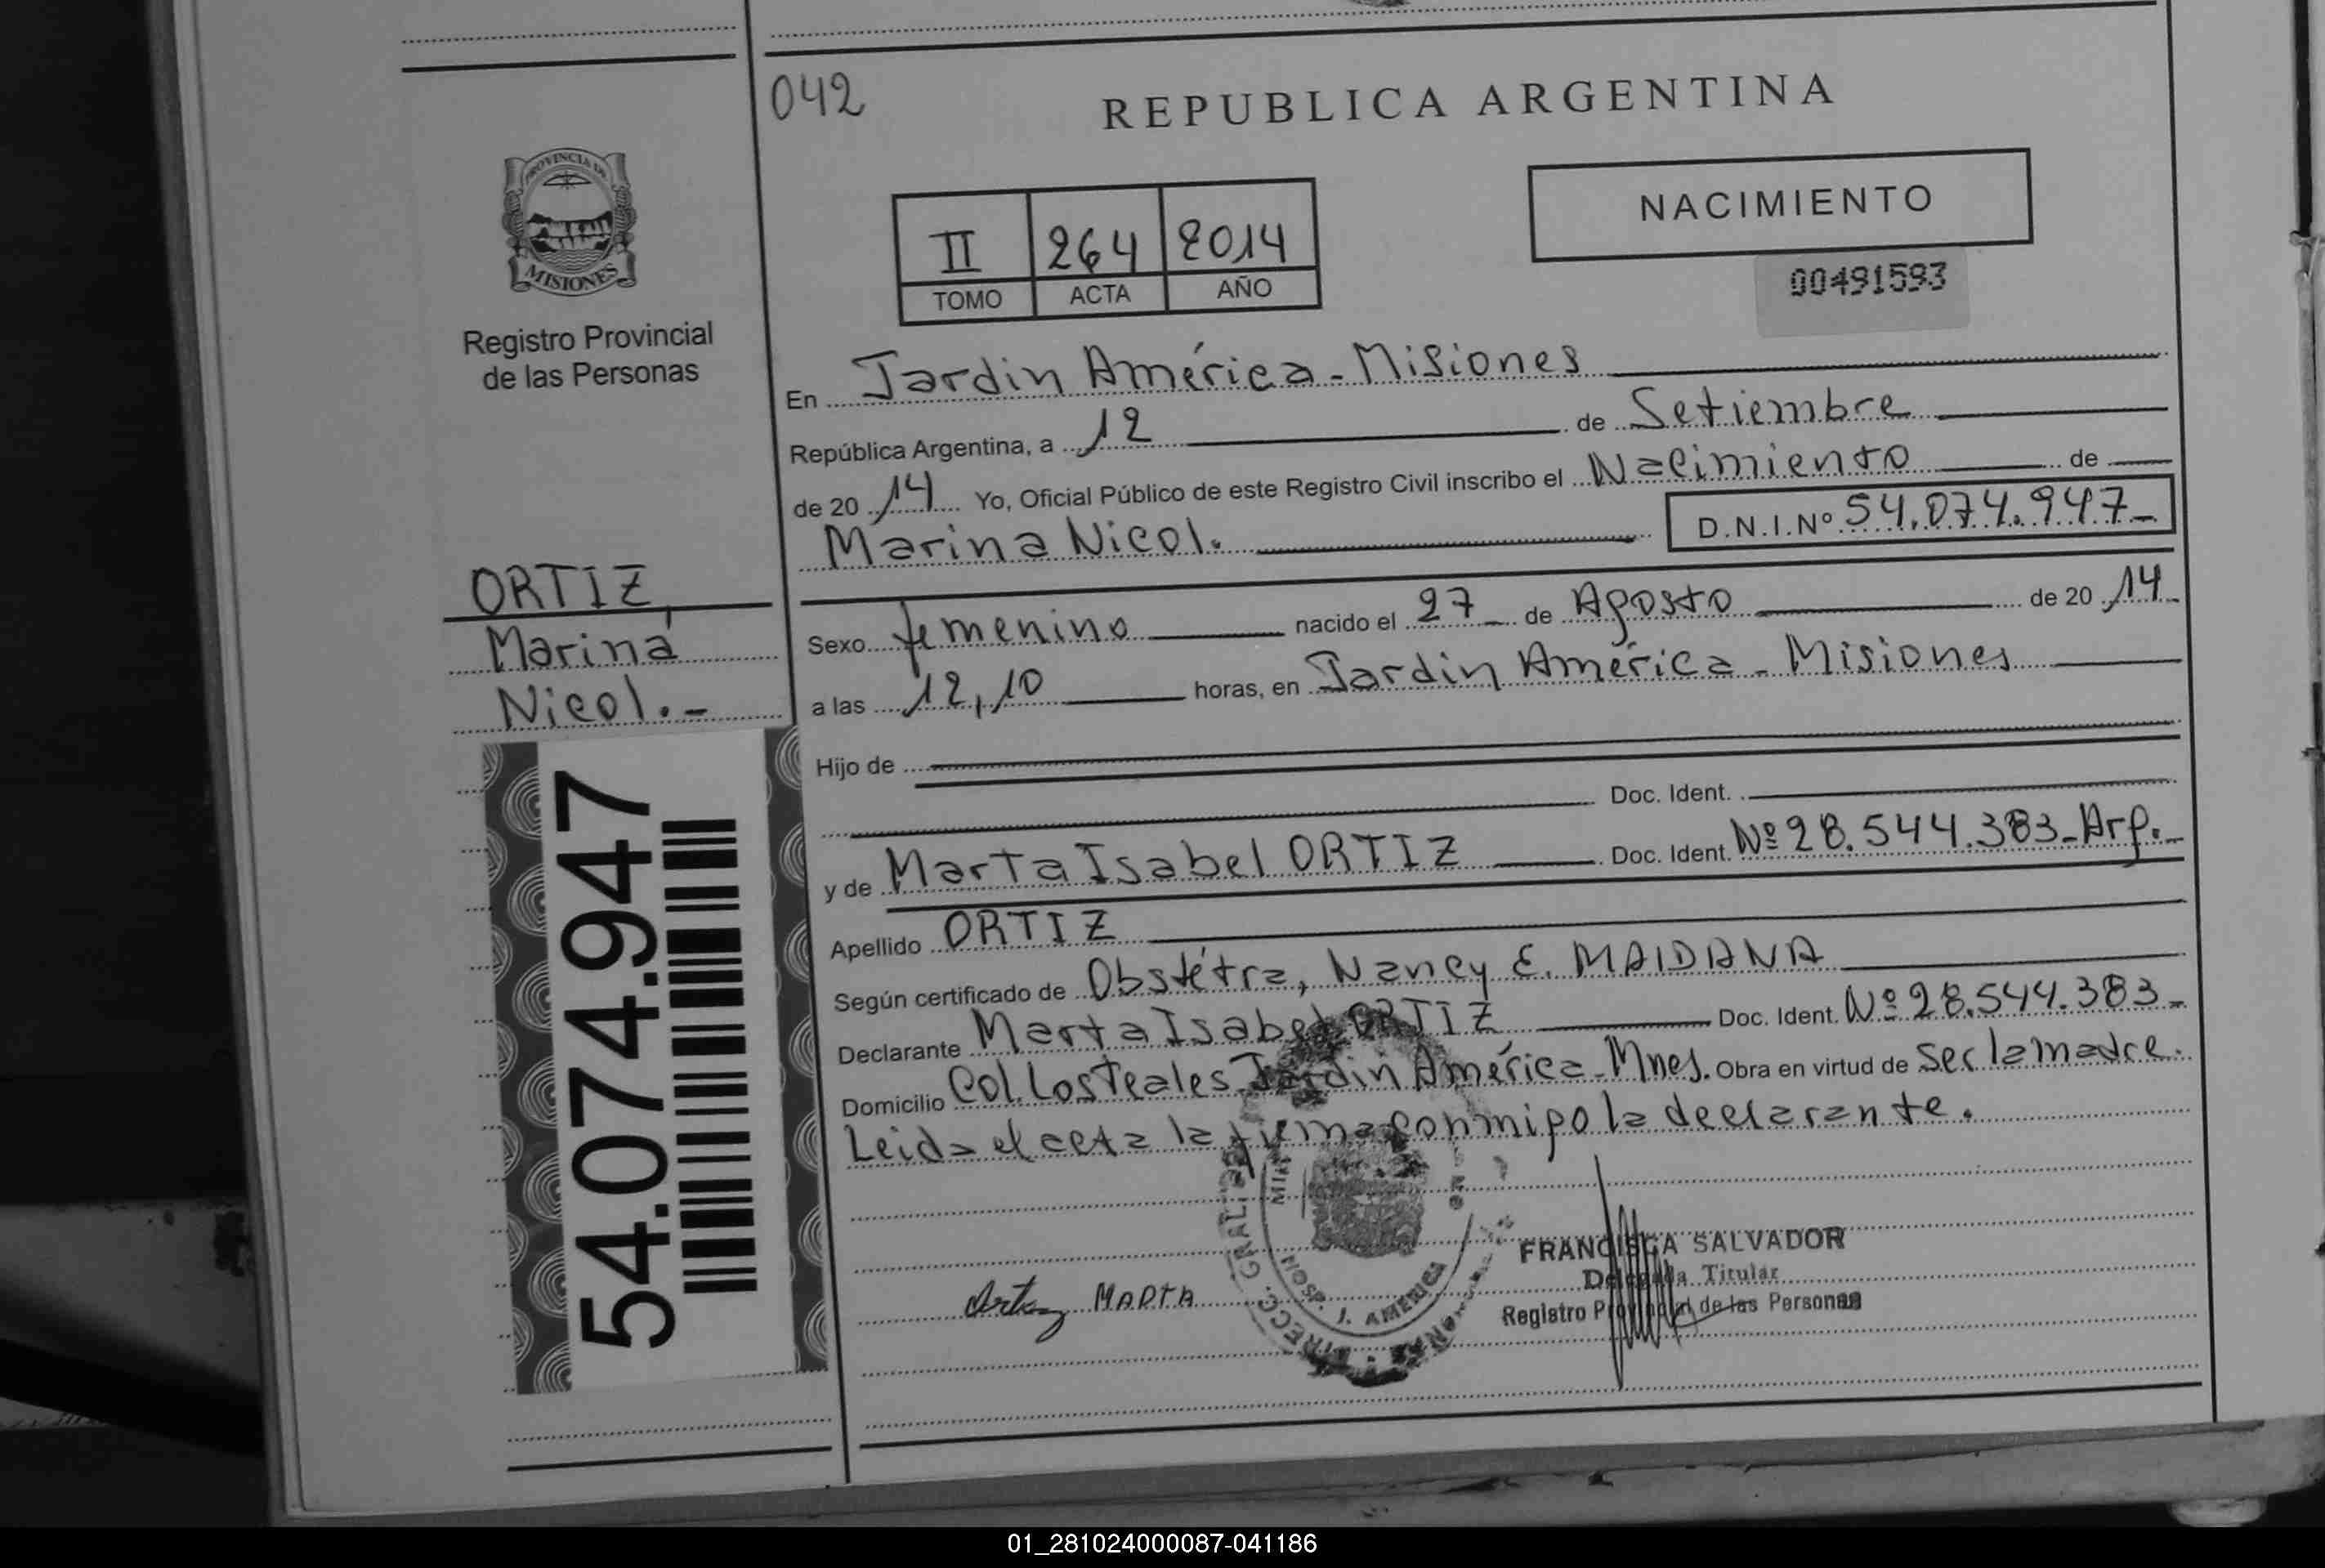 042
REPUBLICA ARGENTINA
PROVINCIA DE
MISIONES
Registro Provincial
de las Personas
II 264 2014
TOMO ACTA AÑO
NACIMIENTO
00491593
En Jardin América - Misiones
República Argentina, a 12 de Setiembre
de 20 14 Yo, Oficial Público de este Registro Civil inscribo el Nacimiento de
Marina Nicol. D.N.I.Nº 54.074.947
ORTIZ,
Marina
Nicol.-
Sexo femenino nacido el 27 de Agosto de 20 14
a las 12,10 horas, en Jardin América - Misiones
Hijo de
Doc. Ident.
y de Marta Isabel ORTIZ Doc. Ident. Nº 28.544.383-Arg.
Apellido ORTIZ
Según certificado de Obstétra, Nancy E. MAIDANA
Declarante Marta Isabel ORTIZ Doc. Ident. Nº 28.544.383-
Domicilio Col. Los Teales Jardin América - Mnes. Obra en virtud de ser la madre.
Leida el acta la firma conmigo la declarante.
54.074.947
MARTA
DIRECC. GRAL.
HOSP. J. AMERICA
FRANCISCA SALVADOR
Delegada Titular
Registro Provincial de las Personas
01_281024000087-041186